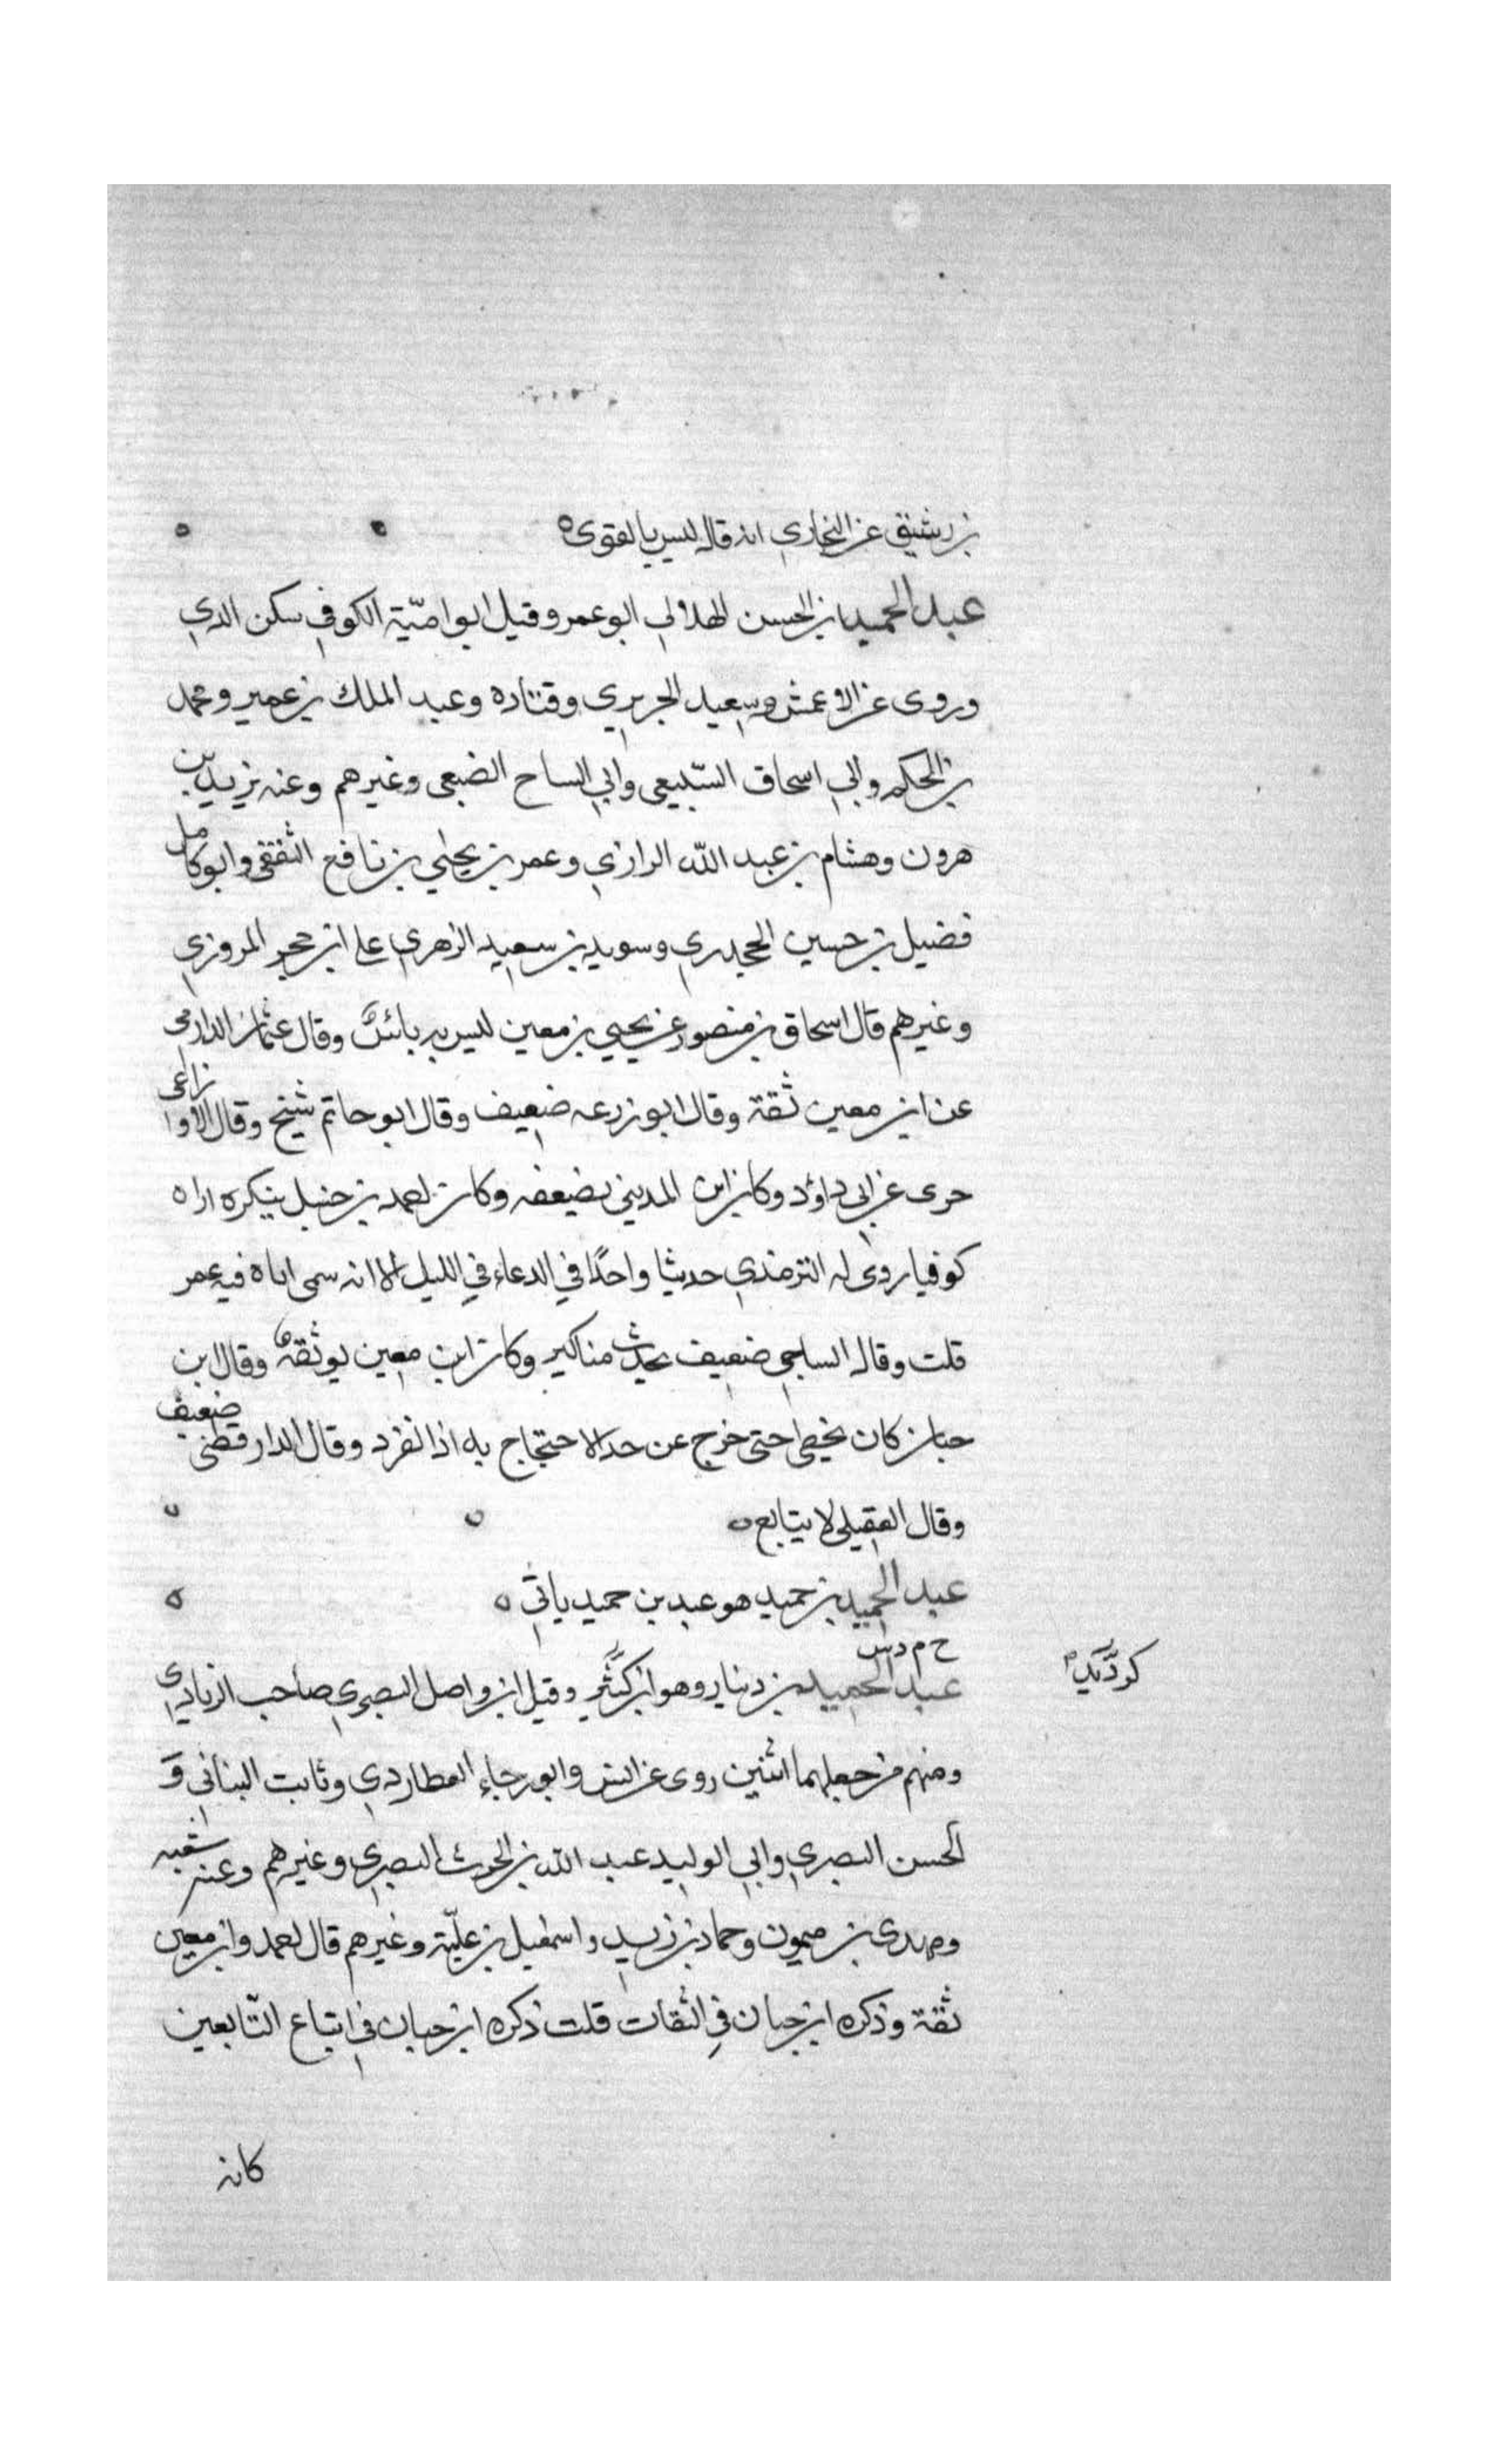 بن رشيق عن البخاري انه قال ليس بالقوى
عبد الحميد بن الحسن الهلالي ابو عمر وقيل ابو اميّة الكوفي سكن الري
وروى عن الاعمش وسعيد الجريري وقتاده وعبد الملك بن عمير ومحمد
بن الحكم وابي اسحاق السّبيعى وابي الساح الضبعى وغيرهم وعنه يزيد بن
هرون وهشام بن عبد الله الرازي وعمر بن يحيي بن نافع الثقفى وابو كامل
فضيل بن حسين الجحدري وسويد بن سعيد الزهري على ابن حجر المروزي
وغيرهم قال اسحاق بن منصور عن يحيي بن معين ليس به بائس وقال عثمان الدارمى
عن ابن معين ثقة وقال ابو زرعه ضعيف وقال ابو حاتم شيخ وقال الاوزاعى
حرى عن ابى داؤد وكان ابن المدينى يضعفه وكان احمد بن حنبل ينكره اراه
كوفيا روى له الترمذي حديثا واحدًا في الدعاء في الليل الا انه سمى اباه فيه عمر
قلت وقال الساجى ضعيف يحدث مناكير وكان ابن معين يوثقه وقال ابن
حبان كان يخطى حتى خرج عن حد الاحتجاج به اذا نفرد وقال الدارقطنى ضعيف
وقال العقيلى لا يتابع
عبد الحميد بن حميد هو عبد بن حميد ياتى
خ م د س
عبد الحميد بن دينار وهو ابن كرديد وقيل ابن واصل البصرى صاحب الزيادي
كرديد
ومنهم من جعلهما اثنين روى عن انس وابو رجاء العطاردي وثابت البنانى وَ
الحسن البصري وابي الوليد عبد الله بن الحرث البصري وغيرهم وعنه شعبه
ومهدى بن ميمون وحماد بن زيد واسمعيل بن عليّة وغيرهم قال احمد وابن معين
ثقة وذكره ابن حبان في الثقات قلت ذكره ابن حبان في اتباع التّابعين
كانه